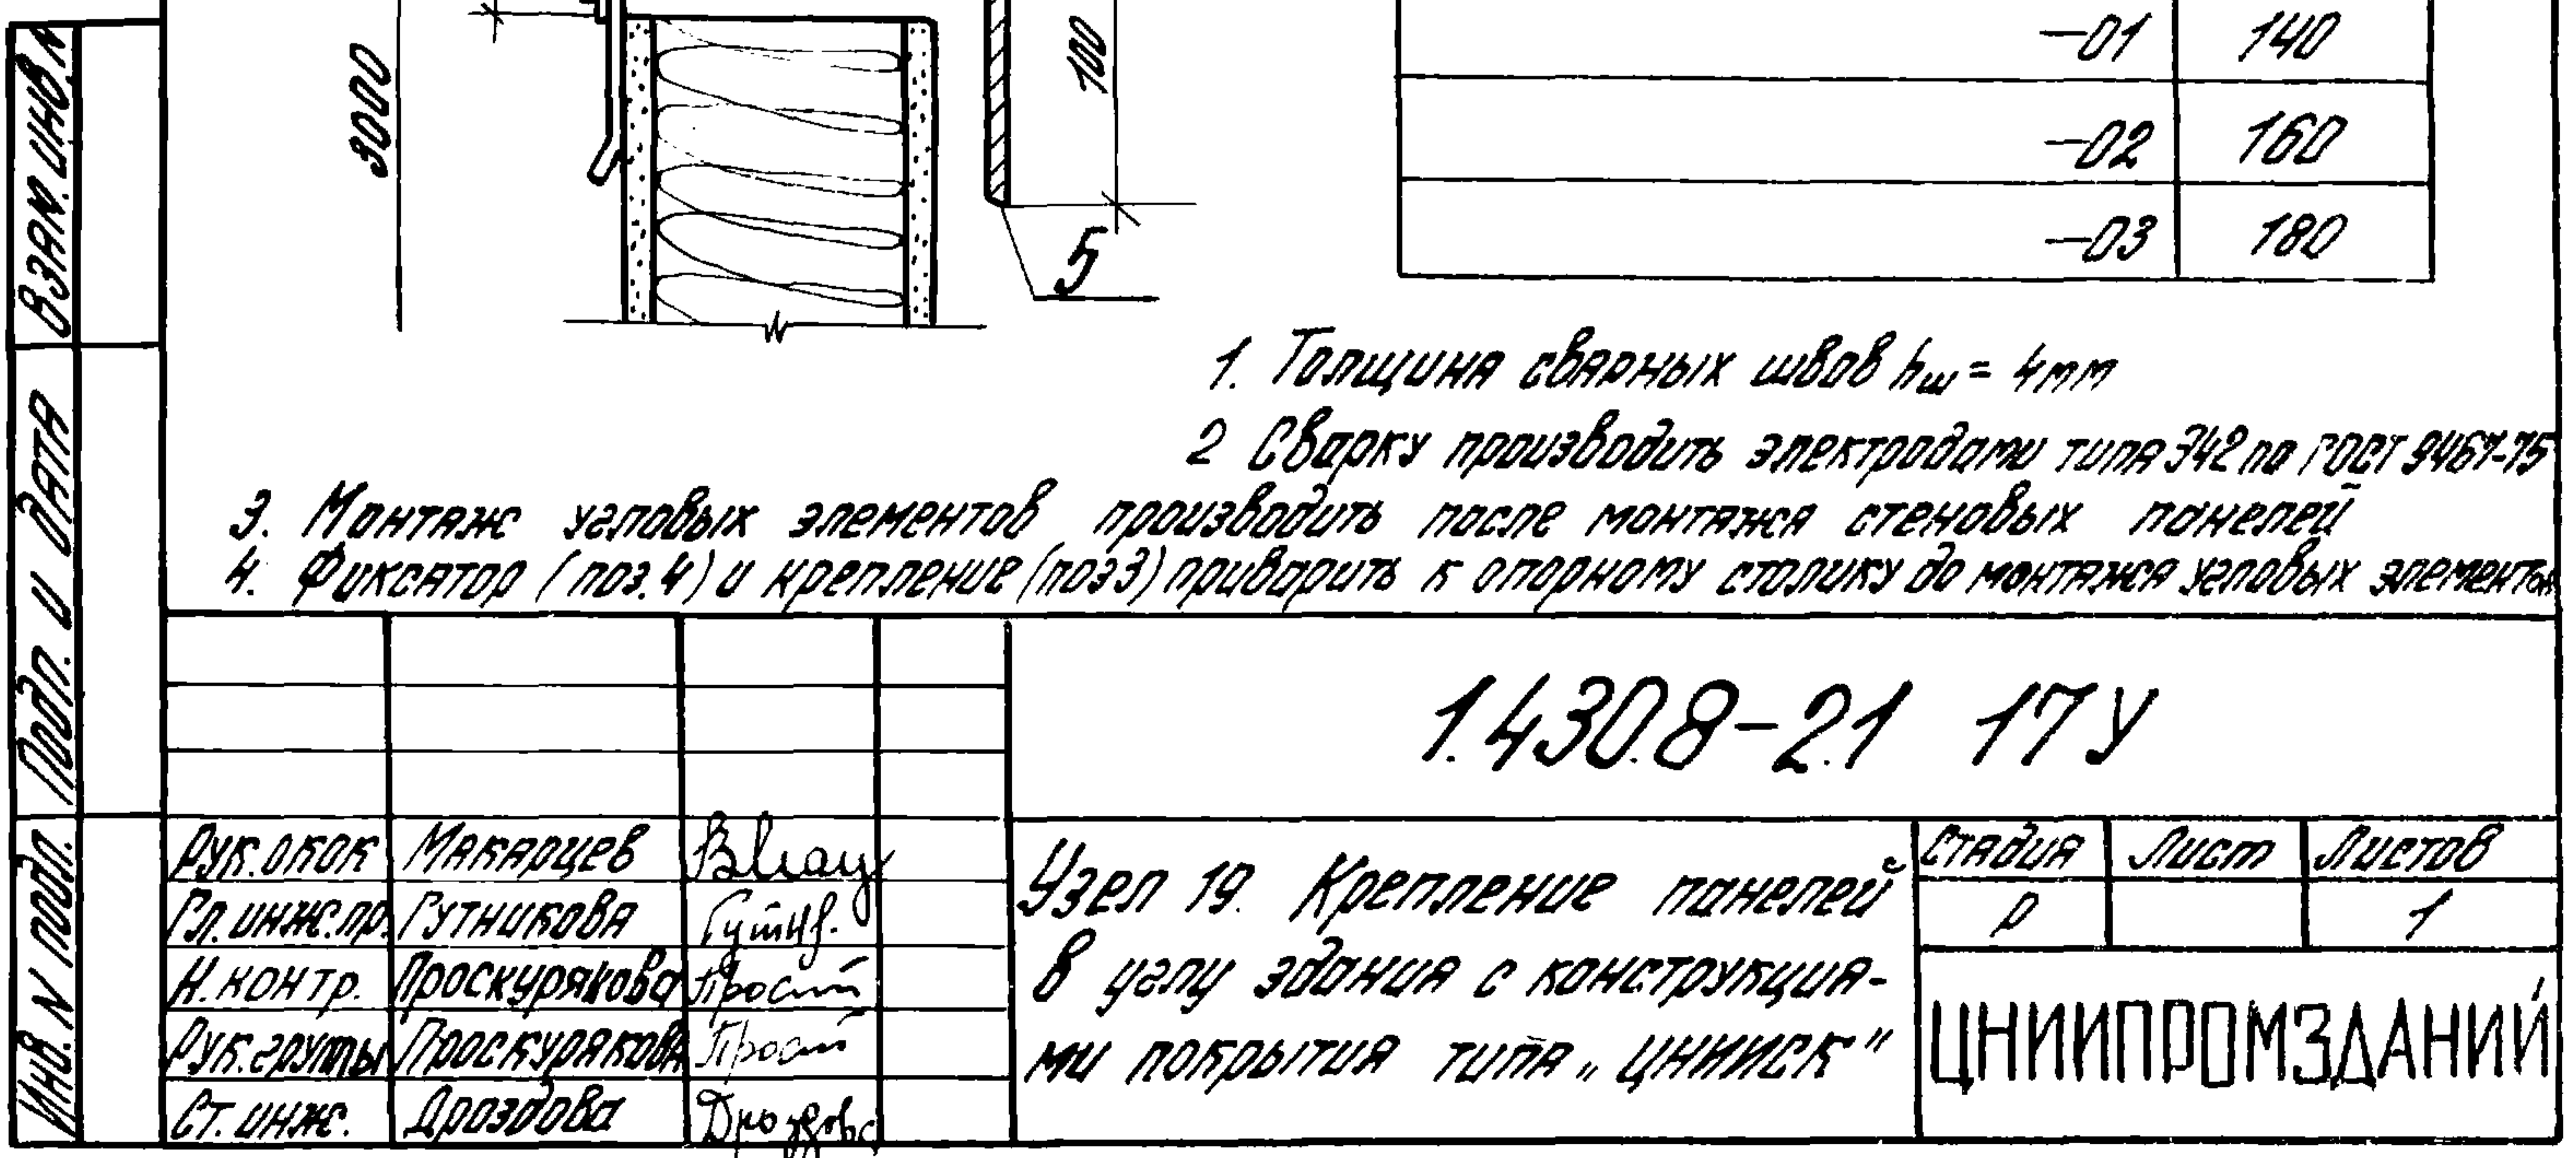 -01 140
-02 160
-03 180
3000
100
5
1. Толщина сварных швов hш = 4мм
2 Сварку производить электродами типа Э42 по ГОСТ 9467-75
3. Монтаж угловых элементов производить после монтажа стеновых панелей
4. Фиксатор (поз. 4) и крепление (поз 3) приварить к опорному столику до монтажа угловых элементов
1.430.8-2.1 17У
Рук. окок Макарцев
Гл. инж. пр. Гутникова Гутнв.
Н. контр. Проскурякова
Рук. группы Проскурякова
Ст. инж. Дроздова Дроздова
Узел 19. Крепление панелей
в углу здания с конструкция-
ми покрытия типа „ЦНИИСК"
Стадия Лист Листов
Р 1
ЦНИИПРОМЗДАНИЙ
Инв. N подл. Подп. и дата Взам. инв. N